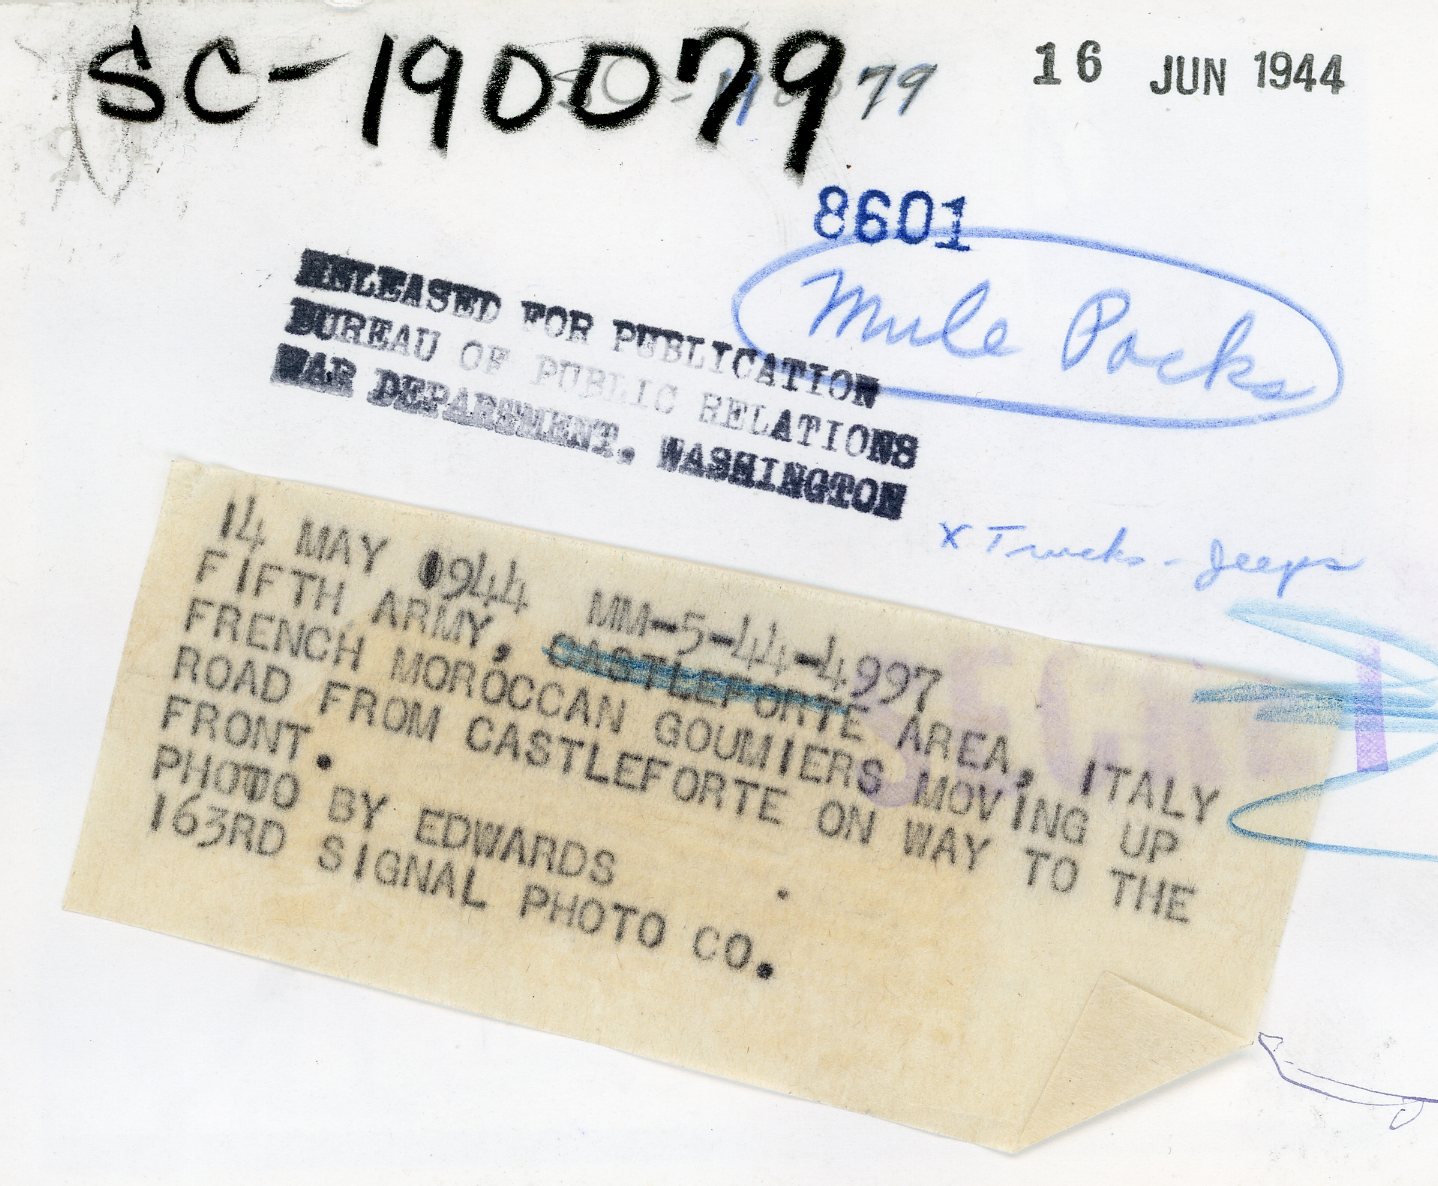 SC-190079
SC-190079
16 JUN 1944
8601
Mule Packs
RELEASED FOR PUBLICATION
BUREAU OF PUBLIC RELATIONS
WAR DEPARTMENT, WASHINGTON
x Trucks - Jeeps
14 MAY 1944 MM-5-44-4997
FIFTH ARMY, CASTLEFORTE AREA, ITALY
FRENCH MOROCCAN GOUMIERS MOVING UP
ROAD FROM CASTLEFORTE ON WAY TO THE
FRONT.
PHOTO BY EDWARDS
163RD SIGNAL PHOTO CO.
SECRET